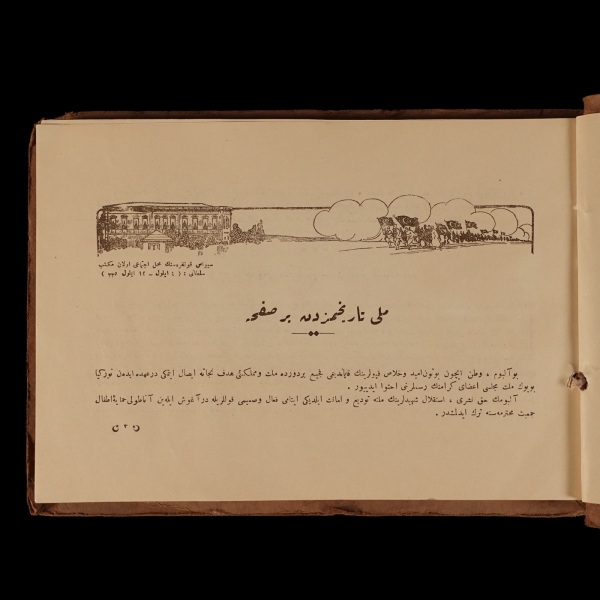 سیواس قونغره‌سنك محل اجتماعی اولان مكتب
سلطانی : ( ٤ ایلول – ١٢ ایلول
ملی تاریخمزدن بر صفحه
بو آلبوم ، وطن ایچون بوتون امید و خلاص قپولرینك قپاندیغی فجیع بر دورده ملت و مملكتی هدف نجاته ایصال ایتمكی درعهده ایده‌ن توركیا
بویوك ملت مجلسی اعضای كرامنك رسملرینی احتوا ایدییور .
آلبومك حق نشری ، استقلال شهیدلرینك ملته تودیع و امانت ایلدیكی ایتامی فعال و صمیمی قوللریله در آغوش ایله‌ین آناطولی حمایۀ اطفال
جمعیت محترمه‌سنه ترك ایدلمشدر .
٣